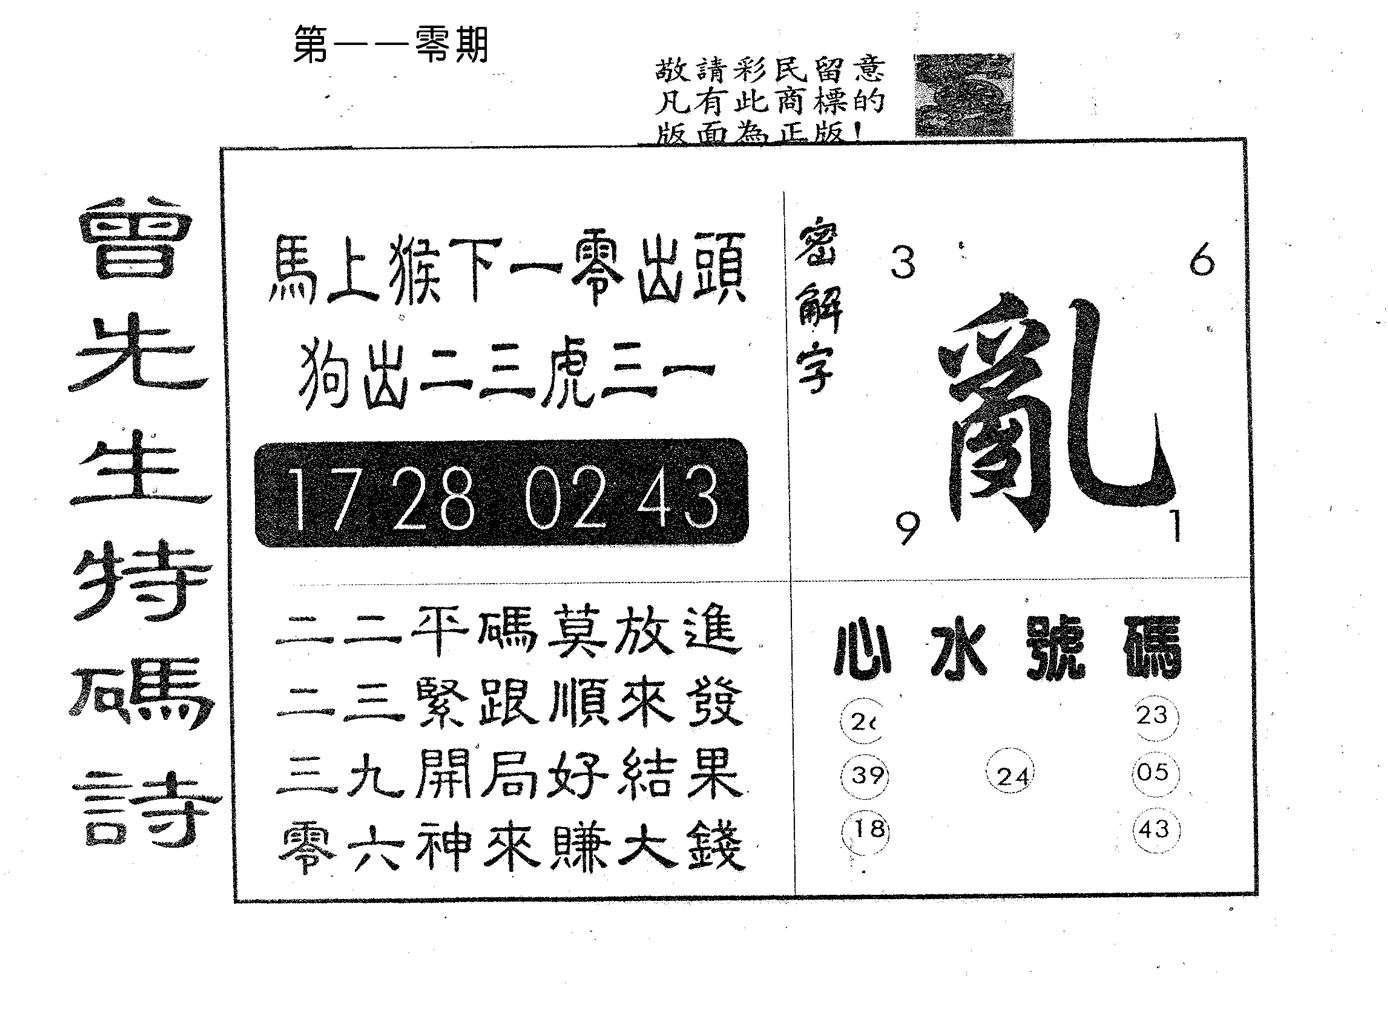 第一一零期
敬請彩民留意
凡有此商標的
版面為正版!
曾先生特碼詩
馬上猴下一零出頭
狗出二三虎三一
17 28 02 43
密解字
3 6
亂
9 1
二二平碼莫放進
二三緊跟順來發
三九開局好結果
零六神來賺大錢
心水號碼
26 23
39 24 05
18 43